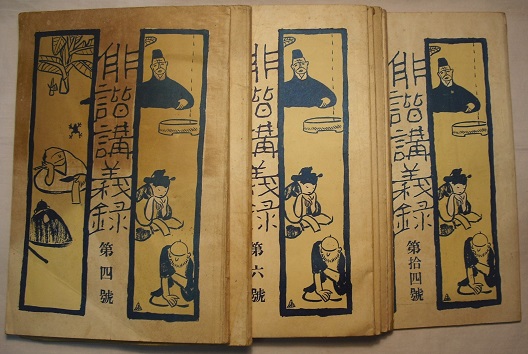 俳諧講義録
第四號
俳諧講義録
第六號
俳諧講義録
第拾四號